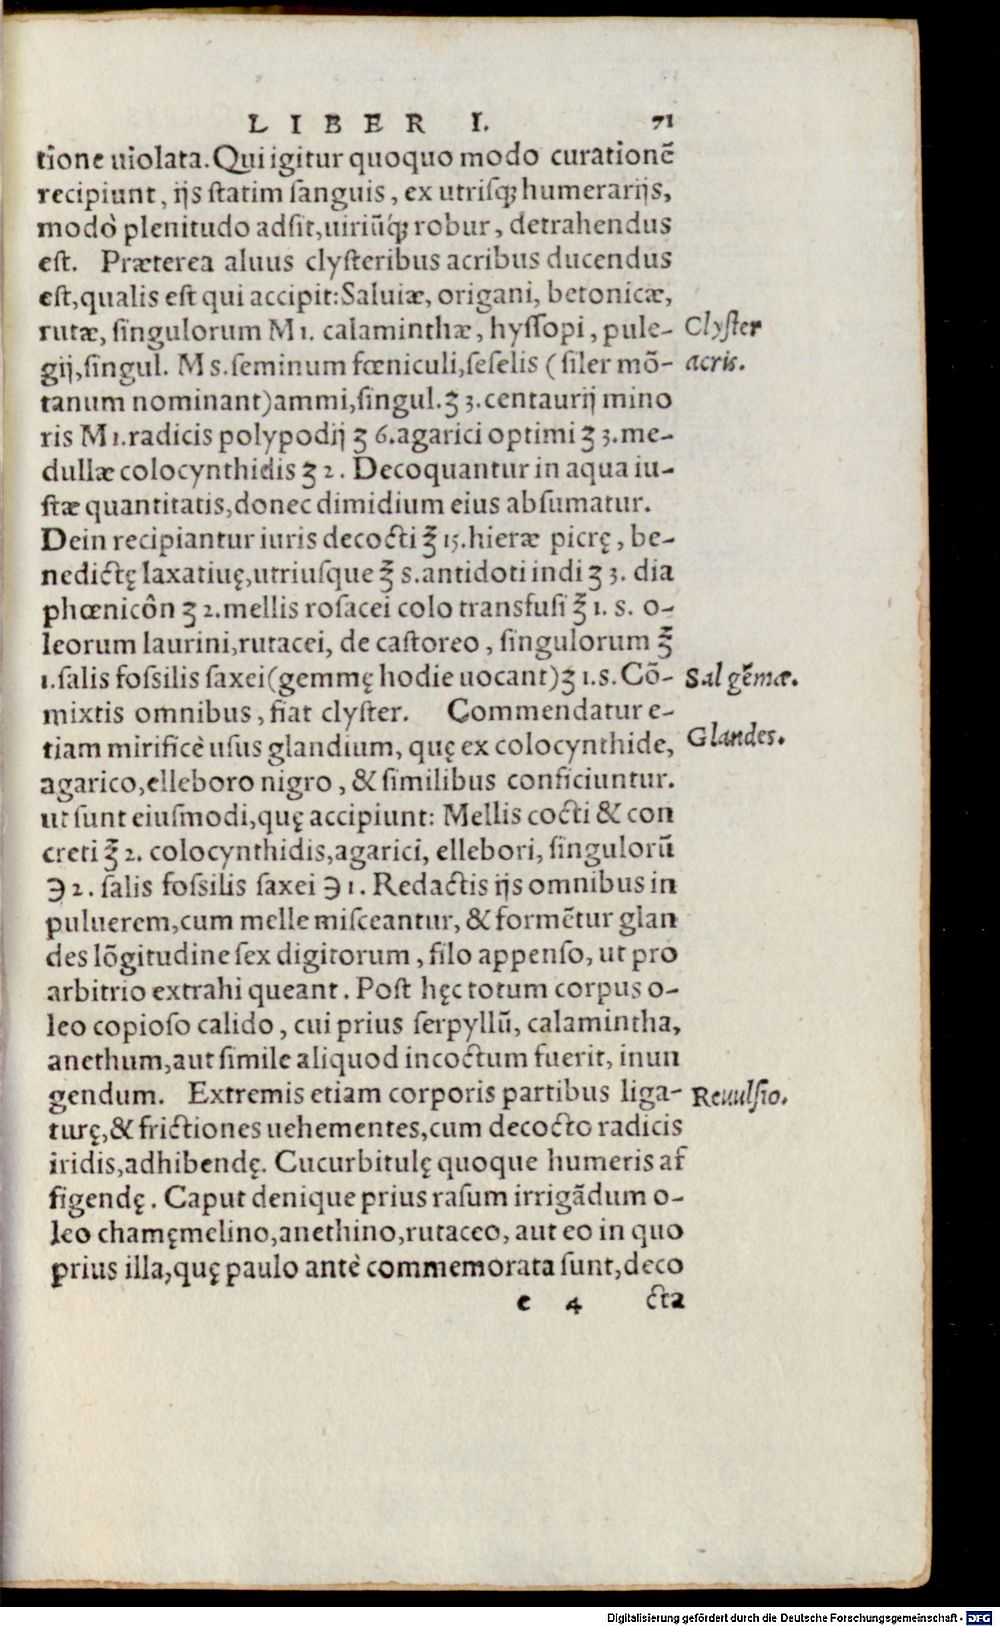 LIBER I. 71
tione uiolata. Qui igitur quoquo modo curationē
recipiunt, ijs ſtatim ſanguis, ex utriſq; humerarijs,
modò plenitudo adſit, uiriūq́; robur, detrahendus
eſt. Præterea aluus clyſteribus acribus ducendus
eſt, qualis eſt qui accipit: Saluiæ, origani, betonicæ,
rutæ, ſingulorum M 1. calaminthæ, hyſſopi, pule-
Clyſter
gij, ſingul. M s. ſeminum fœniculi, ſeſelis (ſiler mō-
acris.
tanum nominant) ammi, ſingul. ʒ 3. centaurij mino
ris M 1. radicis polypodij ʒ 6. agarici optimi ʒ 3. me-
dullæ colocynthidis ʒ 2. Decoquantur in aqua iu-
ſtæ quantitatis, donec dimidium eius abſumatur.
Dein recipiantur iuris decocti ℥ 15. hieræ picrę, be-
nedictę laxatiuę, utriuſque ℥ s. antidoti indi ʒ 3. dia
phœnicôn ʒ 2. mellis roſacei colo transfuſi ℥ 1. s. o-
leorum laurini, rutacei, de caſtoreo, ſingulorum ℥
1. ſalis foſsilis ſaxei (gemmę hodie uocant) ʒ 1. s. Cō-
Sal gēmæ.
mixtis omnibus, fiat clyſter. Commendatur e-
tiam mirificè uſus glandium, quę ex colocynthide,
Glandes.
agarico, elleboro nigro, & ſimilibus conficiuntur.
ut ſunt eiuſmodi, quę accipiunt: Mellis cocti & con
creti ℥ 2. colocynthidis, agarici, ellebori, ſingulorū
℈ 2. ſalis foſsilis ſaxei ℈ 1. Redactis ijs omnibus in
puluerem, cum melle miſceantur, & formētur glan
des lōgitudine ſex digitorum, filo appenſo, ut pro
arbitrio extrahi queant. Poſt hęc totum corpus o-
leo copioſo calido, cui prius ſerpyllū, calamintha,
anethum, aut ſimile aliquod incoctum fuerit, inun
gendum. Extremis etiam corporis partibus liga-
Reuulſio.
turę, & frictiones uehementes, cum decocto radicis
iridis, adhibendę. Cucurbitulę quoque humeris af
figendę. Caput denique prius raſum irrigādum o-
leo chamęmelino, anethino, rutaceo, aut eo in quo
prius illa, quę paulo antè commemorata ſunt, deco
e 4 cta
Digitalisierung gefördert durch die Deutsche Forschungsgemeinschaft - DFG